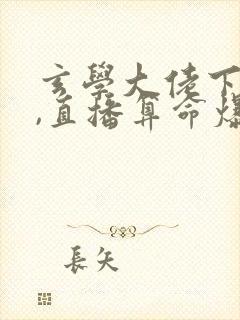 玄學大佬下
,直播算命爆
長矢